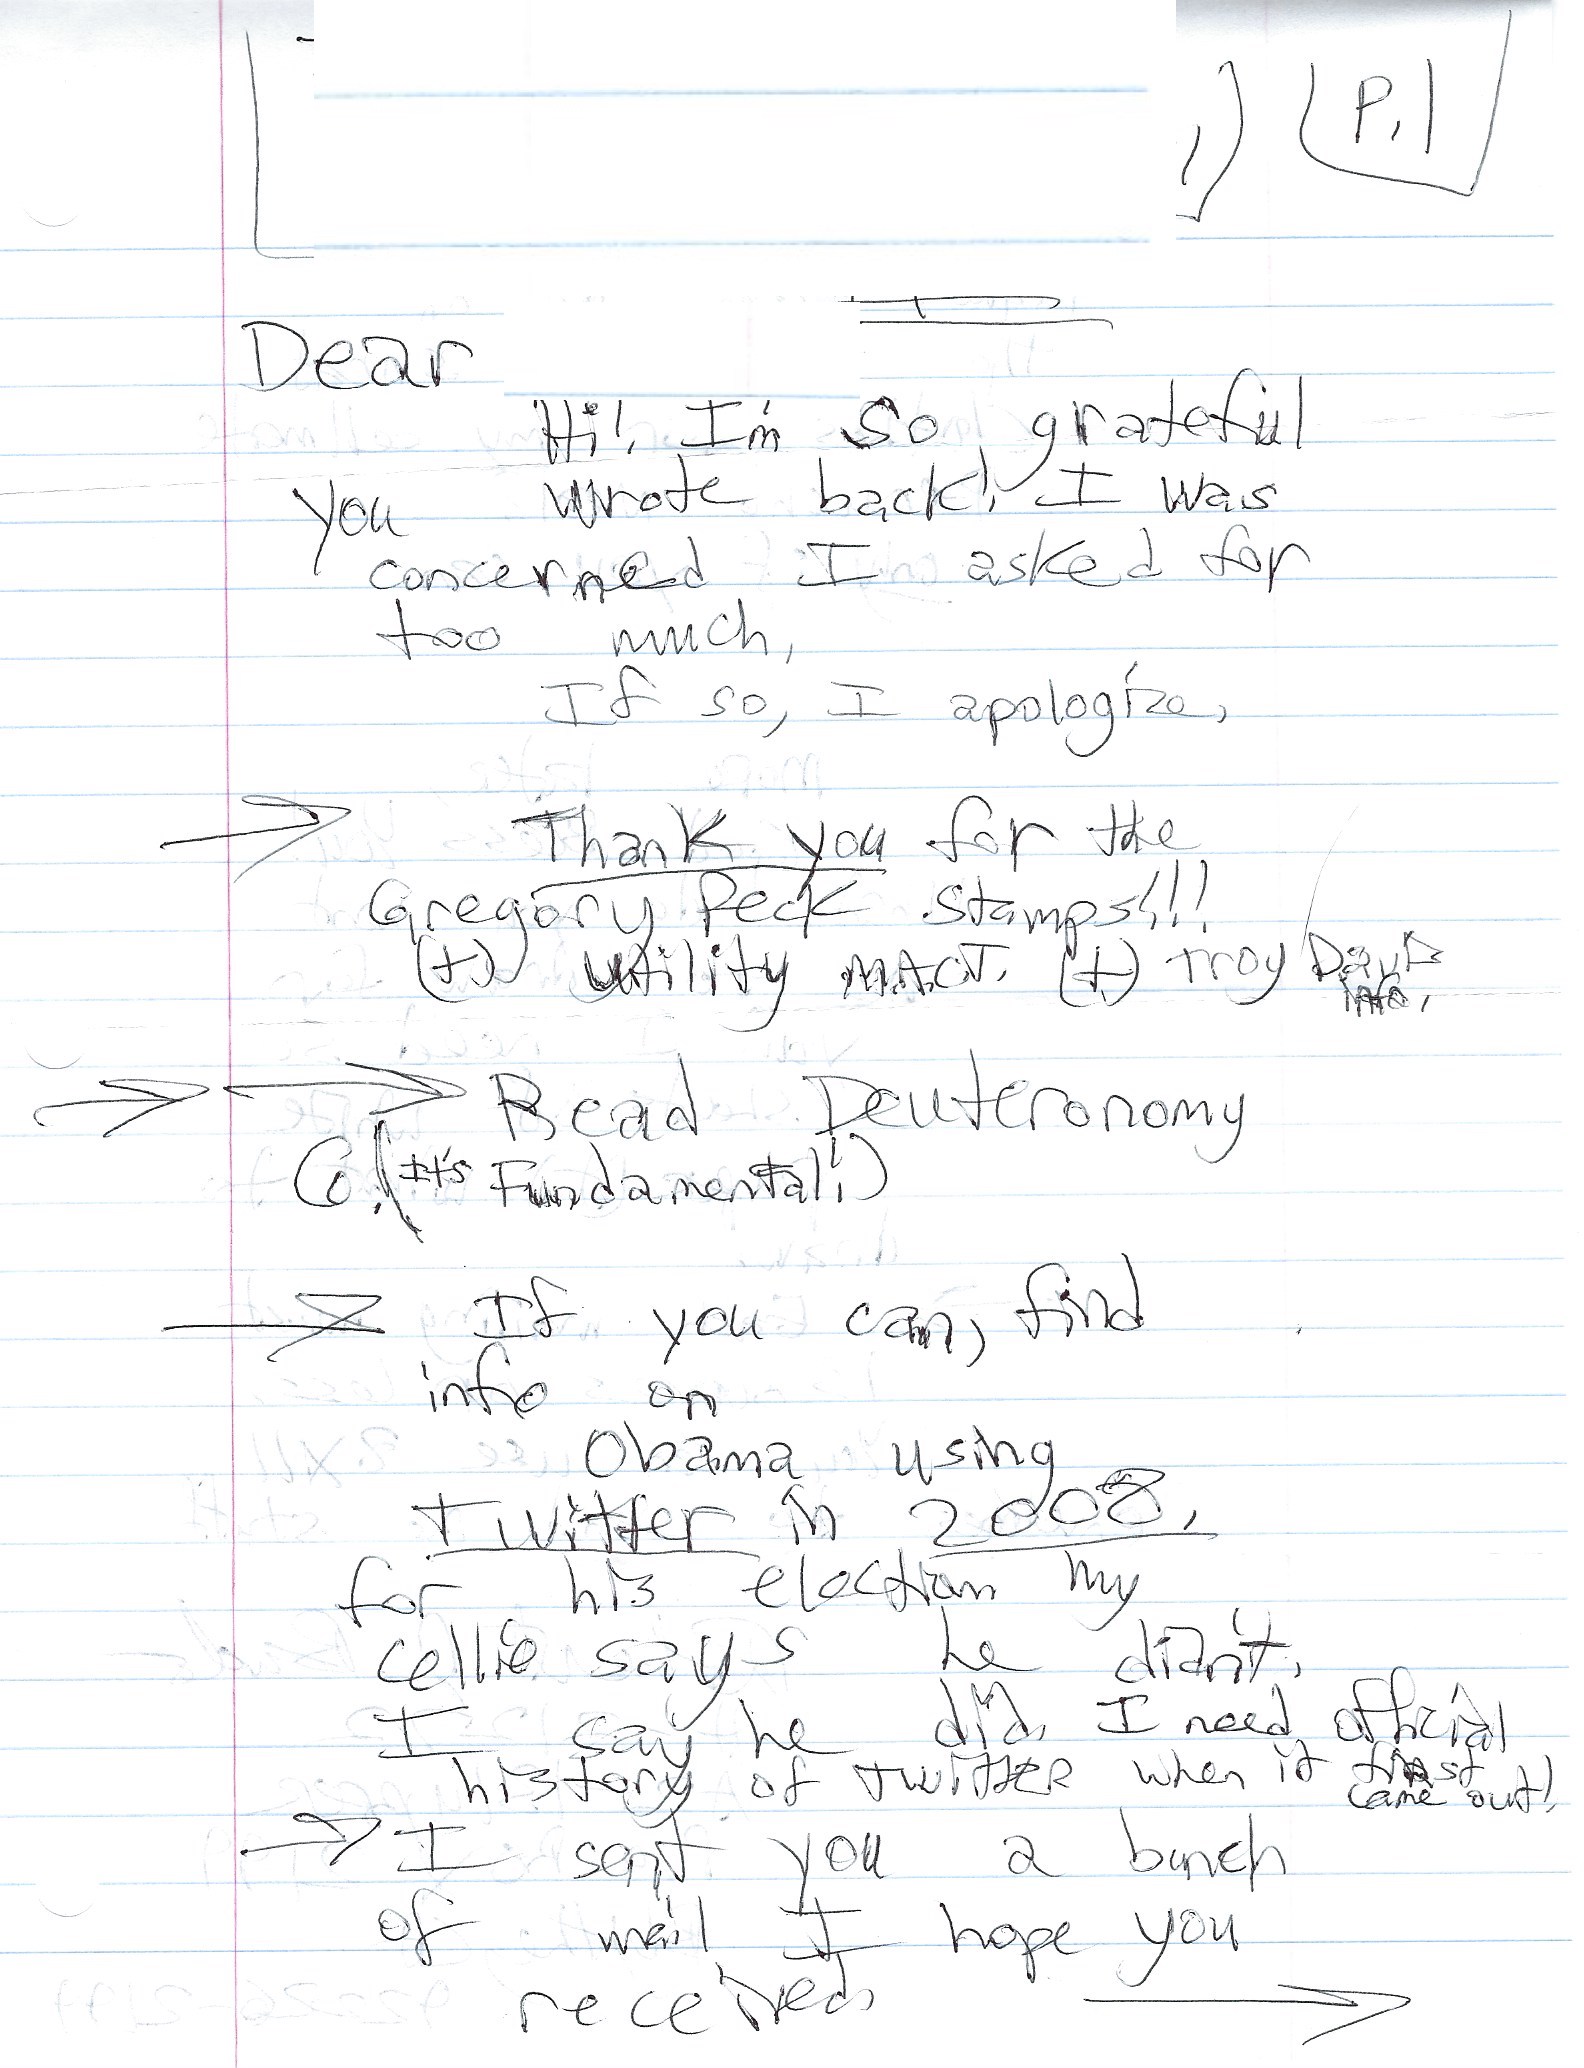 P. 1
Dear
Hi! I'm so grateful
you wrote back! I was
concerned I asked for
too much,
If so, I apologize,
Thank you for the
Gregory Peck stamps!!!
(+) Utility MACT. (+) Troy Davis
info.
Read Deuteronomy
(It's Fundamental!)
If you can, find
info on
Obama using
Twitter in 2008,
for his election my
cellie says he didn't,
I say he did, I need official
history of twitter when it first
came out!
I sent you a bunch
of mail I hope you
received,